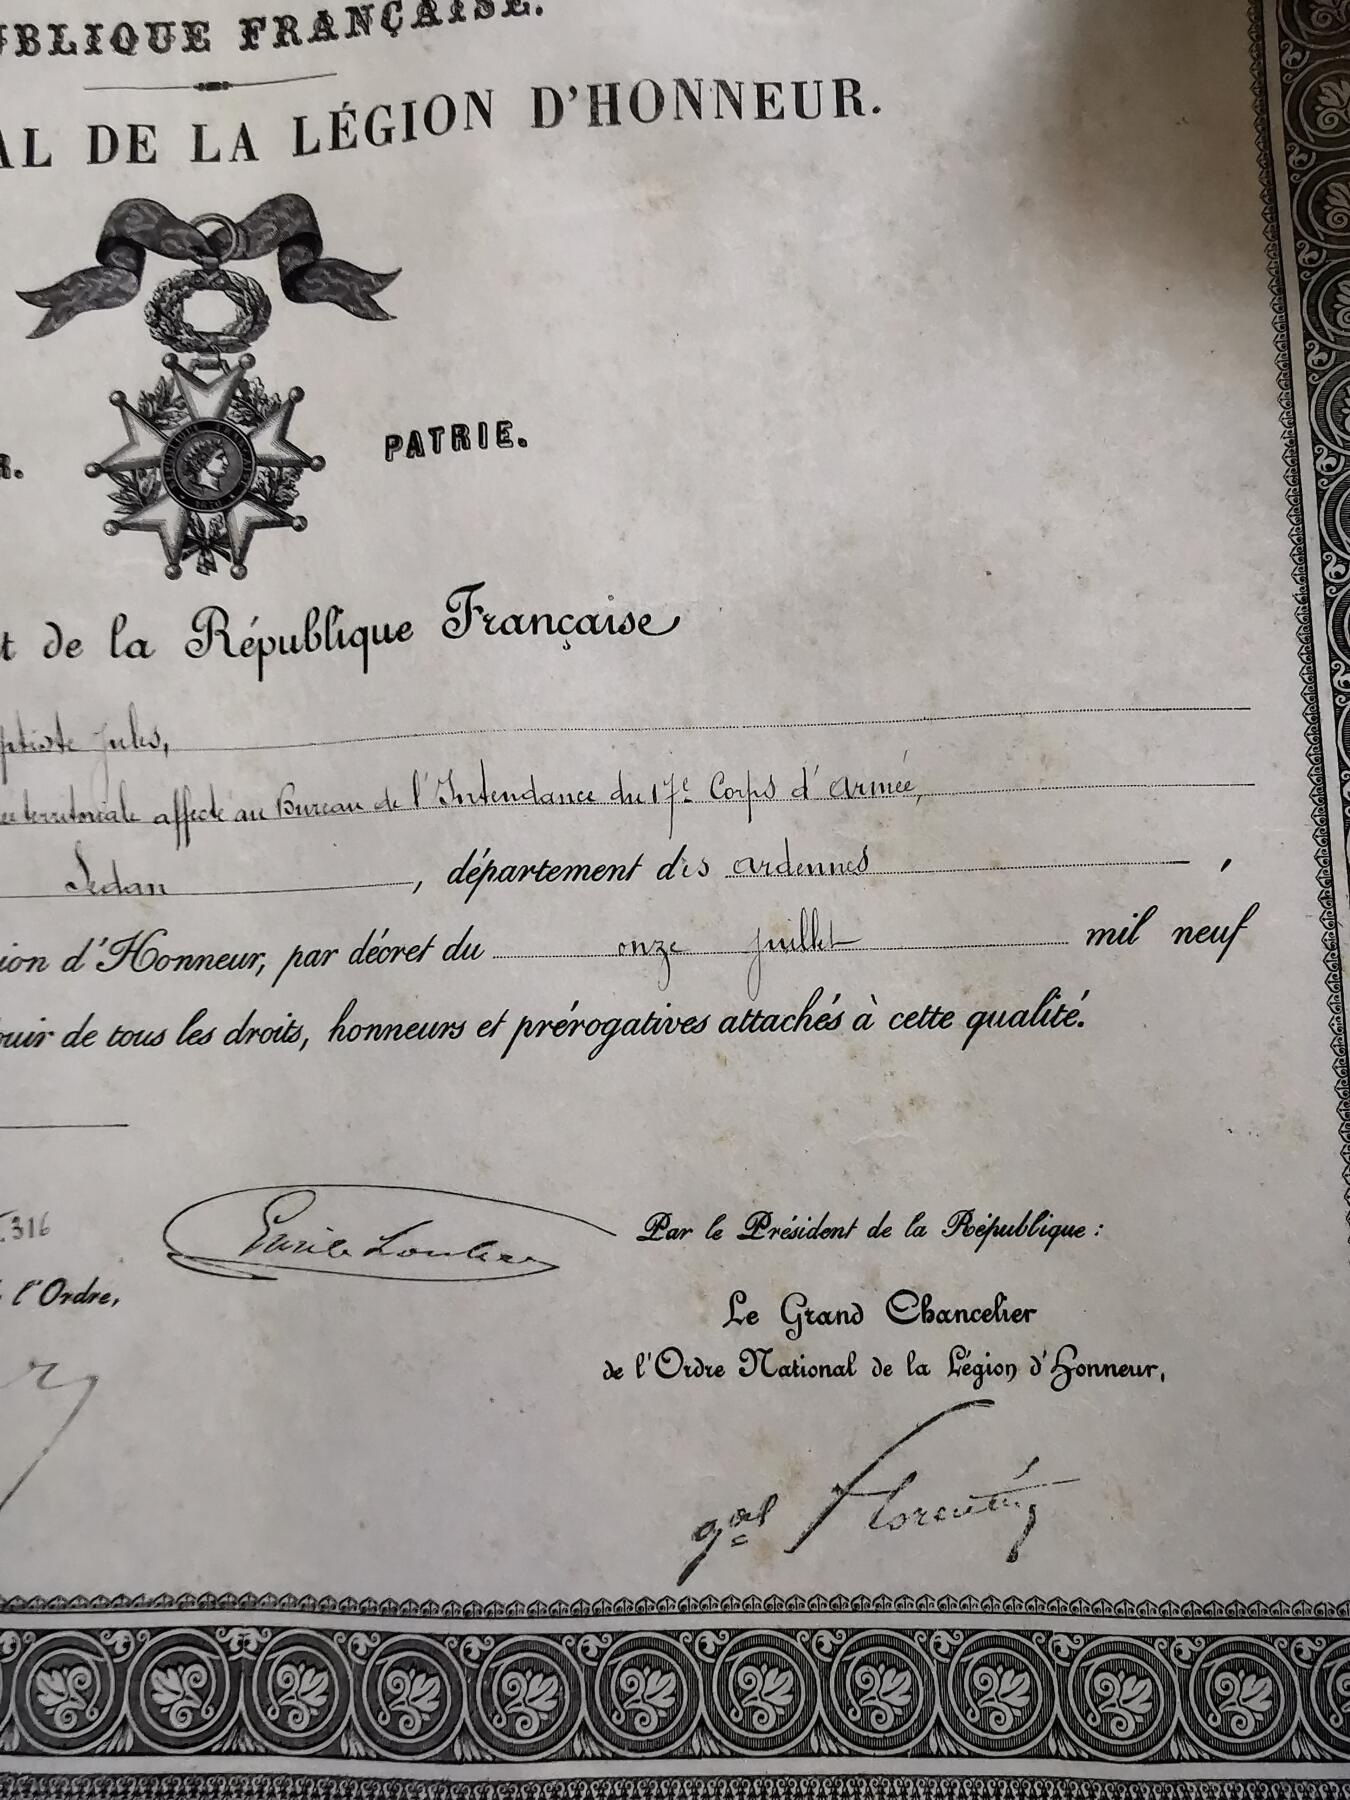 UBLIQUE FRANÇAISE.
AL DE LA LÉGION D'HONNEUR.
R. PATRIE.
t de la République Française
ptiste Jules,
territoriale affecté au Bureau de l'Intendance du 17e Corps d'Armée,
Sedan, département des Ardennes,
ion d'Honneur, par décret du onze juillet mil neuf
ouir de tous les droits, honneurs et prérogatives attachés à cette qualité.
316
Emile Loubet
Par le Président de la République :
l'Ordre,
Le Grand Chancelier
de l'Ordre National de la Légion d'Honneur,
gal Florentin